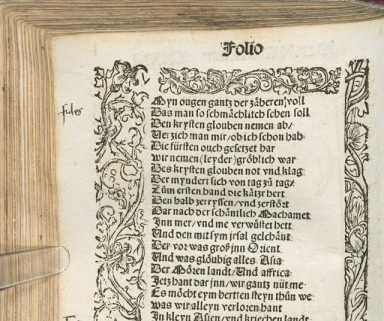 Folio
fides
Myn ougen gantz der zåheren voll
Das man so schmachlich sehen soll
Den krysten glouben nemen ab/
Verzich man mir/ob ich schon hab
Die fürsten ouch gesetzet har
wir nemen (leyder) gröblich war
Des krysten glouben not vnd klag
Der myndert sich von tag zů tag/
Zům ersten hand die kåtzer hert
Den halb zerryssen/vnd zerstört
Dar nach der schåntlich Machamet
Inn mer/vnd me verwüstet hett
Vnd den mit sym jrsal geschånt
Der vor was groß jnn Orient
Vnd was glöubig alles Asia
Der Moren landt/Vnd affrica
Jetz hant dar jnn/wir gantz nüt me
Es möcht eym herten steyn thůn we
was wir alleyn verloren hant
In kleyn Asien/vnd kriechen landt